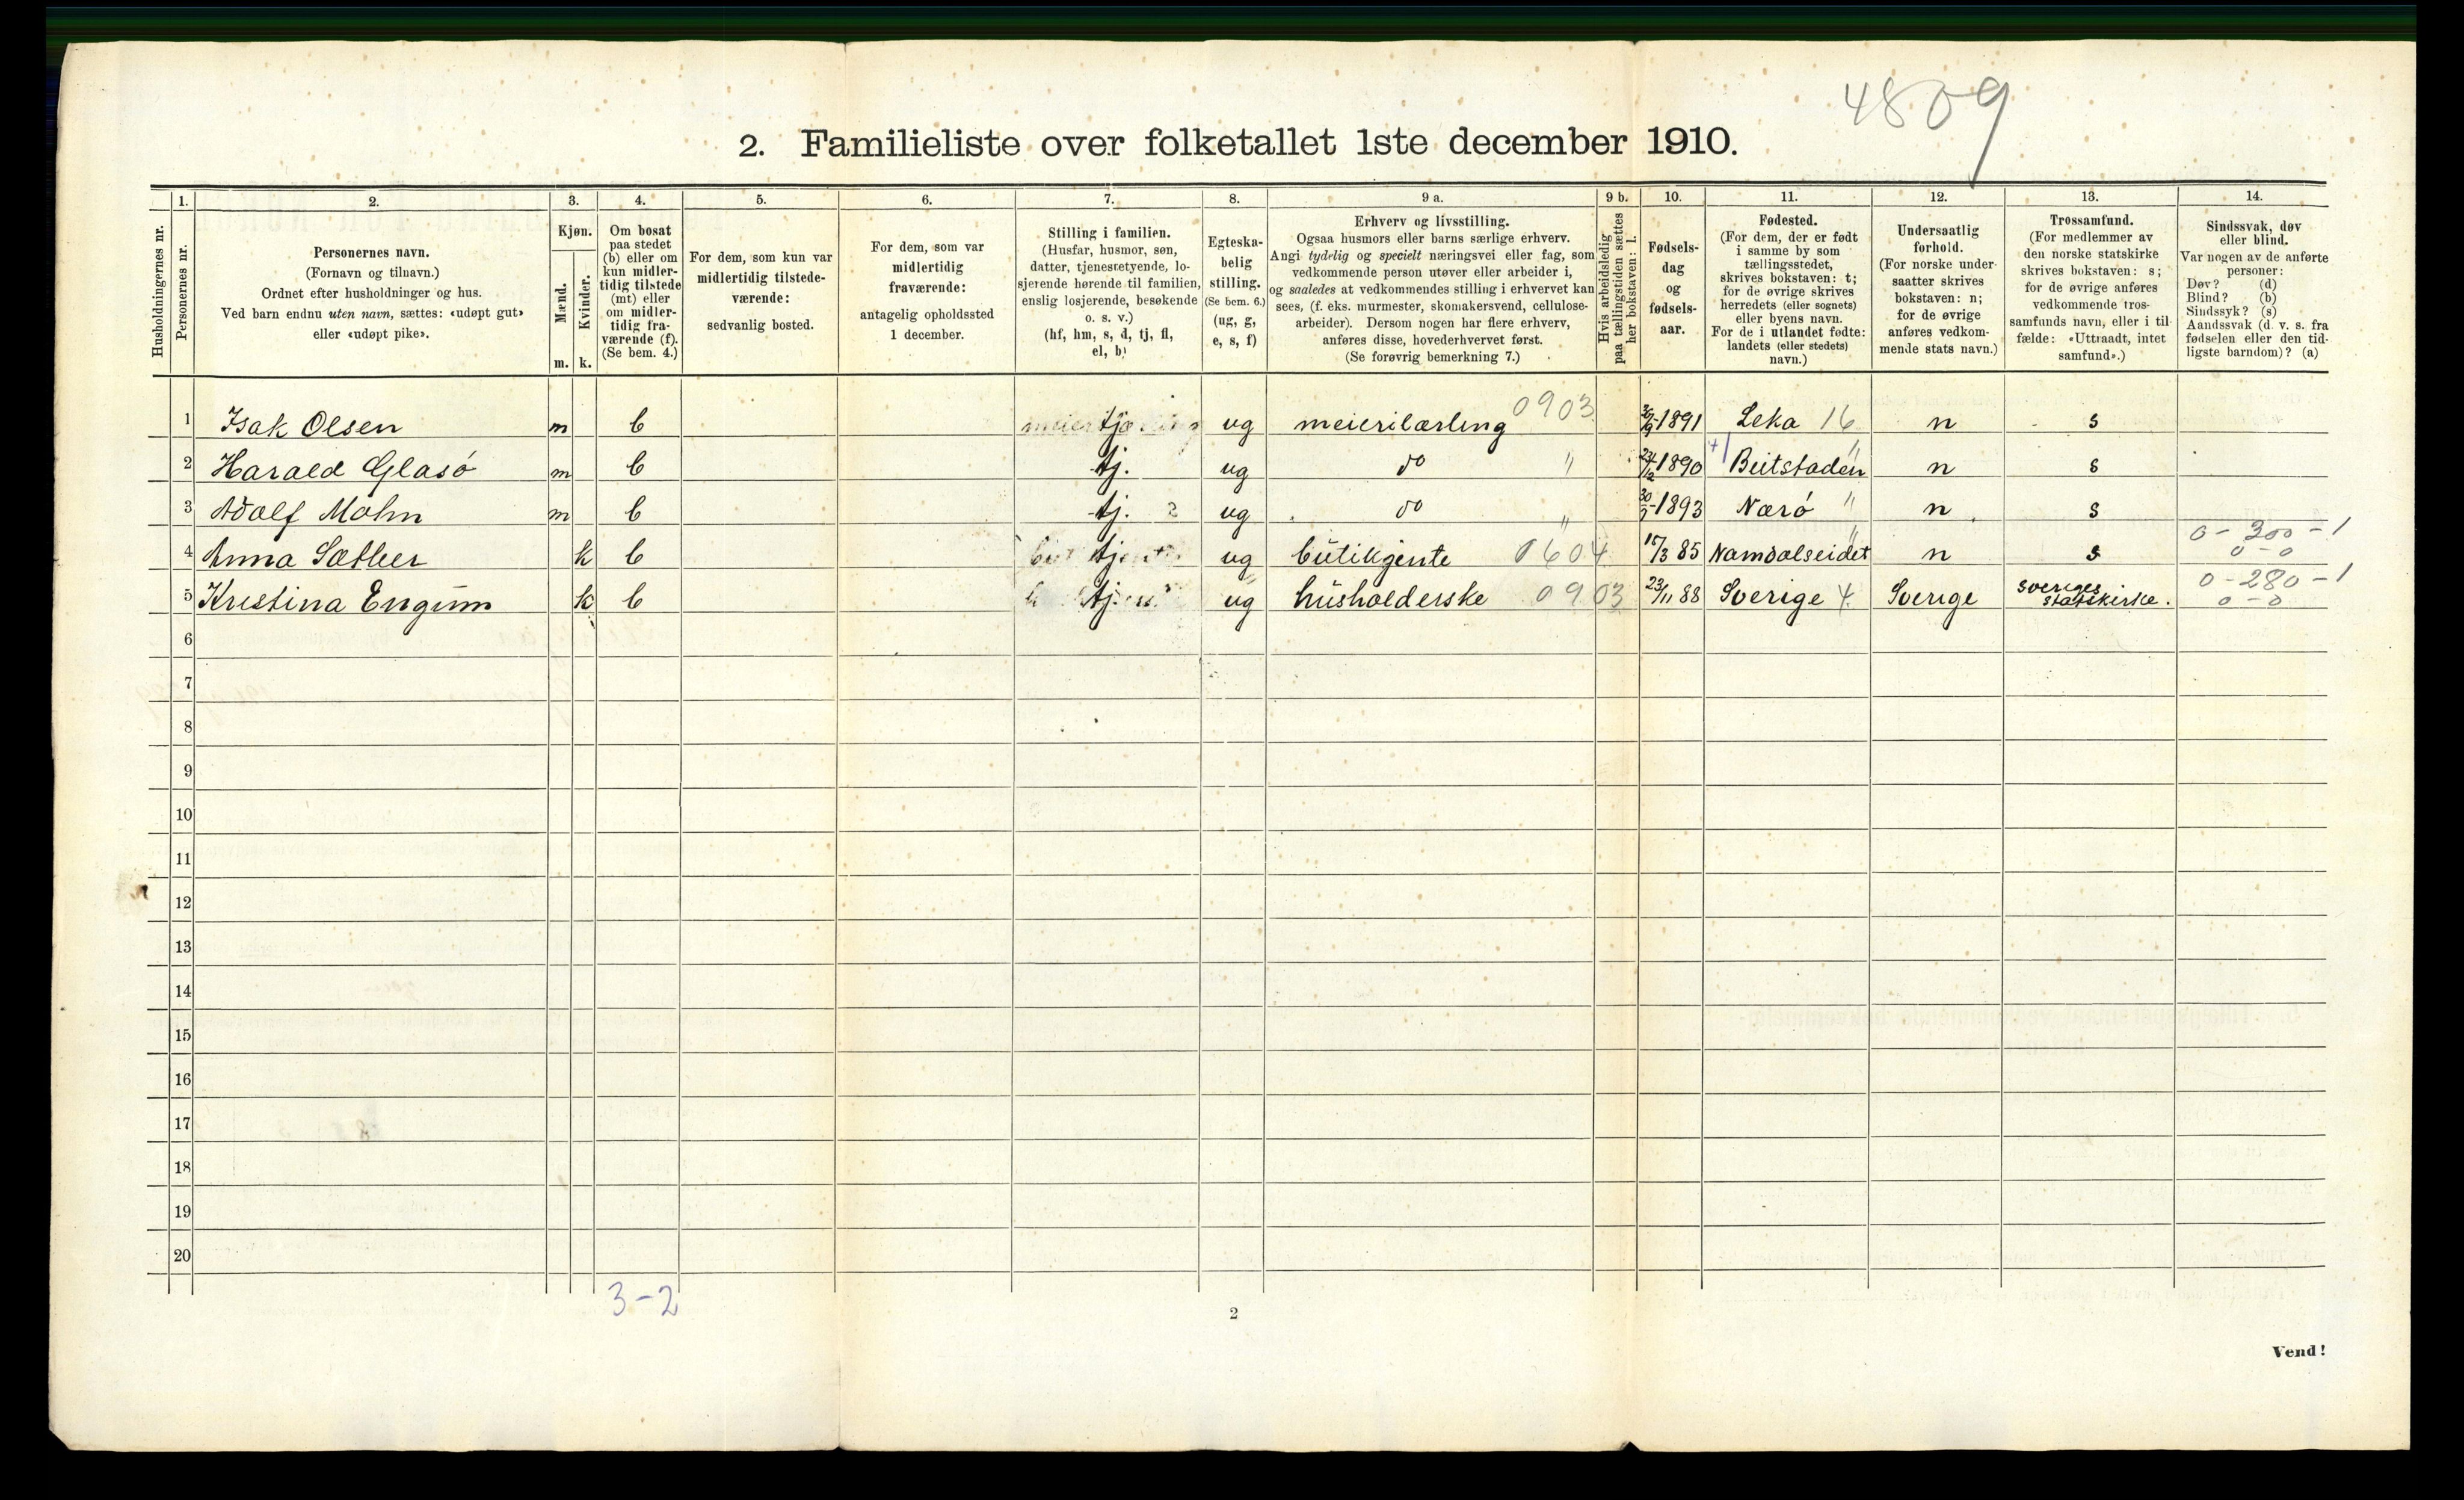 4809
2. Familieliste over folketallet 1ste december 1910.
1. 2. 3. 4. 5. 6. 7. 8. 9 a. 9 b. 10. 11. 12. 13. 14.
Husholdningernes nr.
Personernes nr.
Personernes navn.
(Fornavn og tilnavn.)
Ordnet efter husholdninger og hus.
Ved barn endnu uten navn, sættes: «udøpt gut»
eller «udøpt pike».
Kjøn.
Mænd.
Kvinder.
m. k.
Om bosat
paa stedet
(b) eller om
kun midler-
tidig tilstede
(mt) eller
om midler-
tidig fra-
værende (f).
(Se bem. 4.)
For dem, som kun var
midlertidig tilstede-
værende:
sedvanlig bosted.
For dem, som var
midlertidig
fraværende:
antagelig opholdssted
1 december.
Stilling i familien.
(Husfar, husmor, søn,
datter, tjenestetyende, lo-
sjerende hørende til familien,
enslig losjerende, besøkende
o. s. v.)
(hf, hm, s, d, tj, fl,
el, b)
Egteska-
belig
stilling.
(Se bem. 6.)
(ug, g,
e, s, f)
Erhverv og livsstilling.
Ogsaa husmors eller barns særlige erhverv.
Angi tydelig og specielt næringsvei eller fag, som
vedkommende person utøver eller arbeider i,
og saaledes at vedkommendes stilling i erhvervet kan
sees, (f. eks. murmester, skomakersvend, cellulose-
arbeider). Dersom nogen har flere erhverv,
anføres disse, hovederhvervet først.
(Se forøvrig bemerkning 7.)
Hvis arbeidsledig
paa tællingstiden sættes
her bokstaven: l.
Fødsels-
dag
og
fødsels-
aar.
Fødested.
(For dem, der er født
i samme by som
tællingsstedet,
skrives bokstaven: t;
for de øvrige skrives
herredets (eller sognets)
eller byens navn.
For de i utlandet fødte:
landets (eller stedets)
navn.)
Undersaatlig
forhold.
(For norske under-
saatter skrives
bokstaven: n;
for de øvrige
anføres vedkom-
mende stats navn.)
Trossamfund.
(For medlemmer av
den norske statskirke
skrives bokstaven: s;
for de øvrige anføres
vedkommende tros-
samfunds navn, eller i til-
fælde: «Uttraadt, intet
samfund».)
Sindssvak, døv
eller blind.
Var nogen av de anførte
personer:
Døv? (d)
Blind? (b)
Sindssyk? (s)
Aandssvak (d. v. s. fra
fødselen eller den tid-
ligste barndom)? (a)
1 Isak Olsen m b tj. ug meierilærling 0903 1891 Leka 16 n s
2 Harald Glasø m b tj. ug do " 1890 Beitstaden " n s
3 Adolf Mohn m b tj. ug do " 1893 Nærø " n s
4 Anna Sæther k b tj. ug butikjente 0604 15/3 85 Namdalseidet " n s 0-300-1 0-0
5 Kristina Engum k b tj. ug husholderske 0903 23/11 88 Sverige 4. Sverige sveriges statskirke. 0-280-1 0-0
6
7
8
9
10
11
12
13
14
15
16
17
18
19
20
3-2
2
Vend!